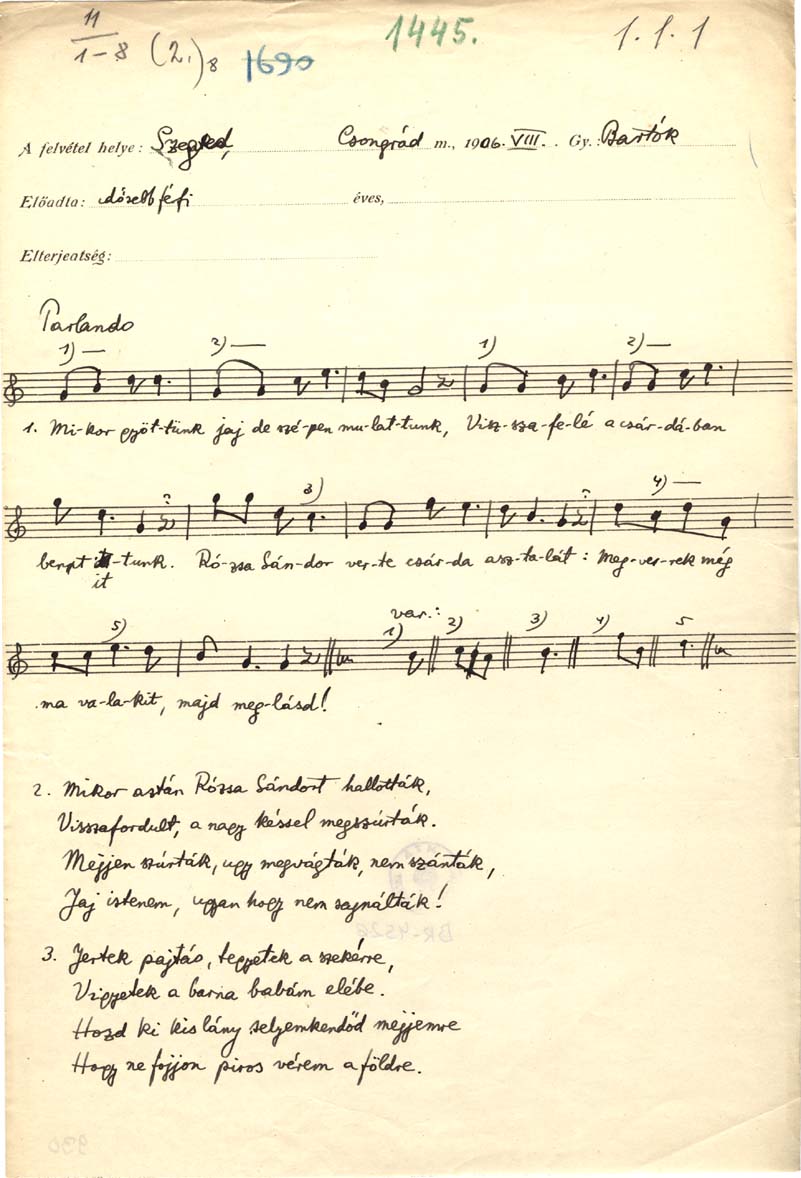 11
1–8 (2.)8 1690 1445. 1. 1. 1
A felvétel helye: Szeged, Csongrád m., 1906. VIII. Gy.: Bartók
Előadta: idősebb féfi éves,
Elterjedtség:
Parlando
1) 2) 1) 2)
1. Mi-kor gyöt-tünk jaj de szé-pen mu-lat-tunk, Visz-sza-fe-lé a csár-dá-ban
? 3) ? 4)
bennt -tunk. Ró-zsa Sán-dor ver-te csár-da asz-ta-lát: Meg-ver-rek még
it
5) var.: 1) 2) 3) 4) 5
ma va-la-kit, majd meg-lásd!
2. Mikor astán Rózsa Sándort hallották,
Visszafordult, a nagy késsel megszúrták.
Mejjen szúrták, ugy megvágták, nem szánták,
Jaj istenem, ugyan hogy nem sajnálták!
BR-4526
3. Jertek pajtás, tegyetek a szekérre,
Vigyetek a barna babám elébe.
Hozd ki kis lány selyemkendőd mejjemre
Hogy ne fojjon piros vérem a földre.
930